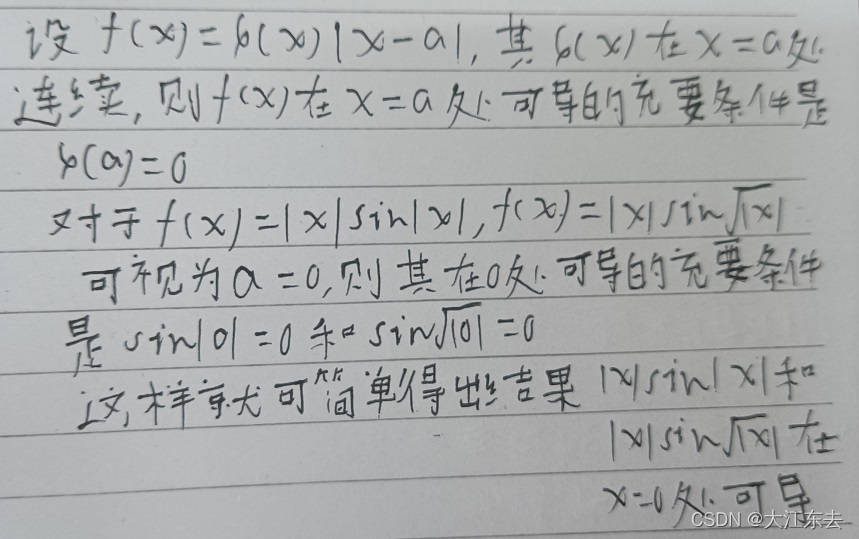 设 f(x)=φ(x)|x-a|, 其 φ(x) 在 x=a 处
连续, 则 f(x) 在 x=a 处可导的充要条件是
φ(a)=0
对于 f(x)=|x|sin|x|, f(x)=|x|sin√|x|
可视为 a=0, 则其在0处可导的充要条件
是 sin|0|=0 和 sin√|0|=0
这样就可简单得出结果 |x|sin|x| 和
|x|sin√|x| 在
x=0处可导
CSDN @大江东去